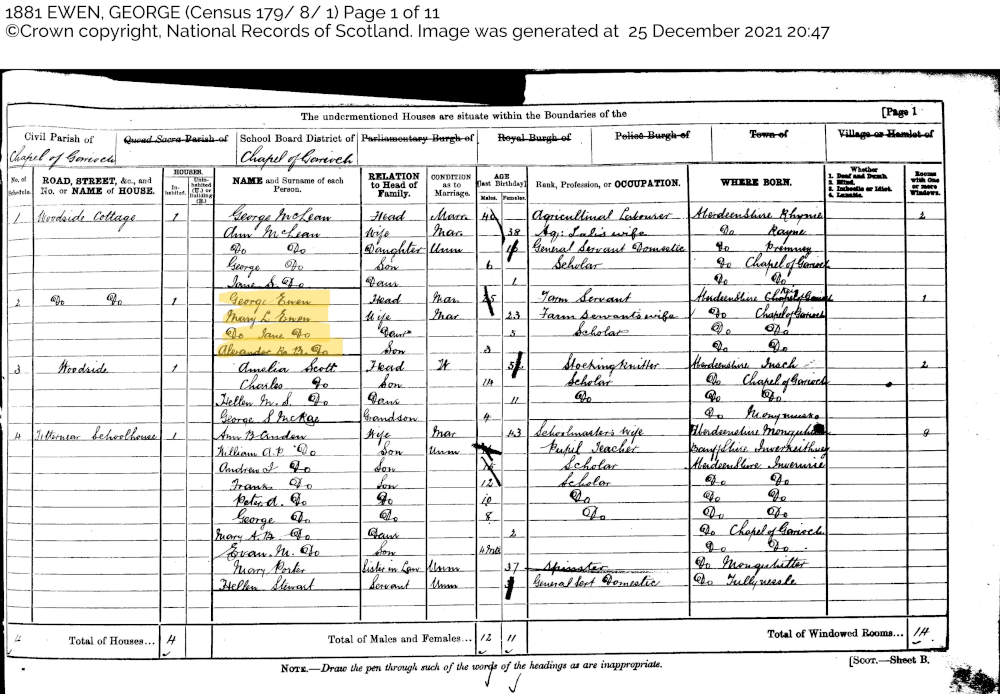 1881 EWEN, GEORGE (Census 179/ 8/ 1) Page 1 of 11
©Crown copyright, National Records of Scotland. Image was generated at 25 December 2021 20:47
The undermentioned Houses are situate within the Boundaries of the [Page 1
Civil Parish of Quoad Sacra Parish of School Board District of Parliamentary Burgh of Royal Burgh of Police Burgh of Town of Village or Hamlet of
Chapel of Garioch Chapel of Garioch
No. of Schedule. ROAD, STREET, &c., and No. or NAME of HOUSE. HOUSES. In-habited. Unin-habited (U.) or Building (B.) NAME and Surname of each Person. RELATION to Head of Family. CONDITION as to Marriage. AGE [last Birthday] Males. Females. Rank, Profession, or OCCUPATION. WHERE BORN. Whether 1. Deaf and Dumb. 2. Blind. 3. Imbecile or Idiot. 4. Lunatic. Rooms with One or more Windows.
1 Woodside Cottage 1 George McLean Head Marr 40 Agricultural Labourer Aberdeenshire Rhynie 2
Ann McLean Wife Mar. 38 Ag: Lab's wife Do Rayne
Do Do Daughter Unm 16 General Servant Domestic Do Premnay
George Do Son 6 Scholar Do Chapel of Garioch
Jane S. Do Daur 1 Do Do
2 Do Do 1 George Ewen Head Mar. 25 Farm Servant Aberdeenshire 1
Mary L Ewen Wife Mar 23 Farm servant's wife Do Chapel of Garioch
Do Jane Do Daur 5 Scholar Do Do
Alexander Do Son 3 Do Do
3 Woodside 1 Amelia Scott Head W Stockingknitter Aberdeenshire Insch 2
Charles Do Son 14 Scholar Do Chapel of Garioch
Hellen M. S. Do Daur 11 Do Do Do
George S McKay Grandson 4 Do Monymusk
4 Fetternear Schoolhouse 1 Ann B Wife Mar 43 Schoolmaster's Wife Aberdeenshire 9
William A. P. Do Son Unm Pupil Teacher Banffshire Inverkeithney
Andrew J Do Son Scholar Aberdeenshire Inverurie
Frank Do Son 12 Scholar Do Do
Peter A. Do Do 10 Do Do Do
George Do Do 8 Do Do Do
Mary A. B. Do Daur 2 Do Chapel of Garioch
Evan. M. Do Son 4 Mts Do Do
Mary Porter Sister in Law Unm 37 Spinster Do Monquhitter
Hellen Stewart Servant Unm General Sert Domestic Do Tullynessle
4 Total of Houses... 4 Total of Males and Females... 12 11 Total of Windowed Rooms... 14
NOTE.—Draw the pen through such of the words of the headings as are inappropriate. [SCOT.—Sheet B.